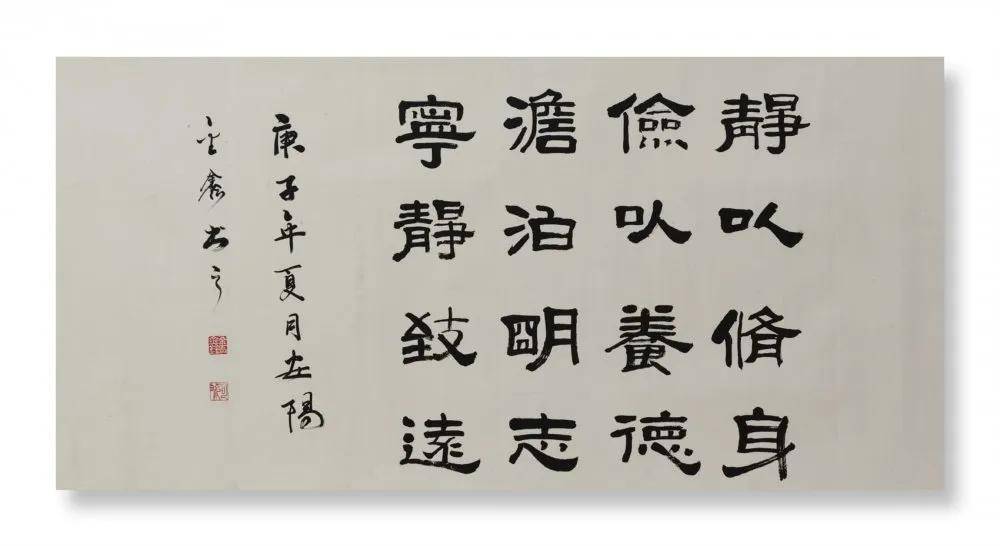 靜以脩身
儉以養德
澹泊明志
寧靜致遠
庚子年夏月在陽
金鑫书之